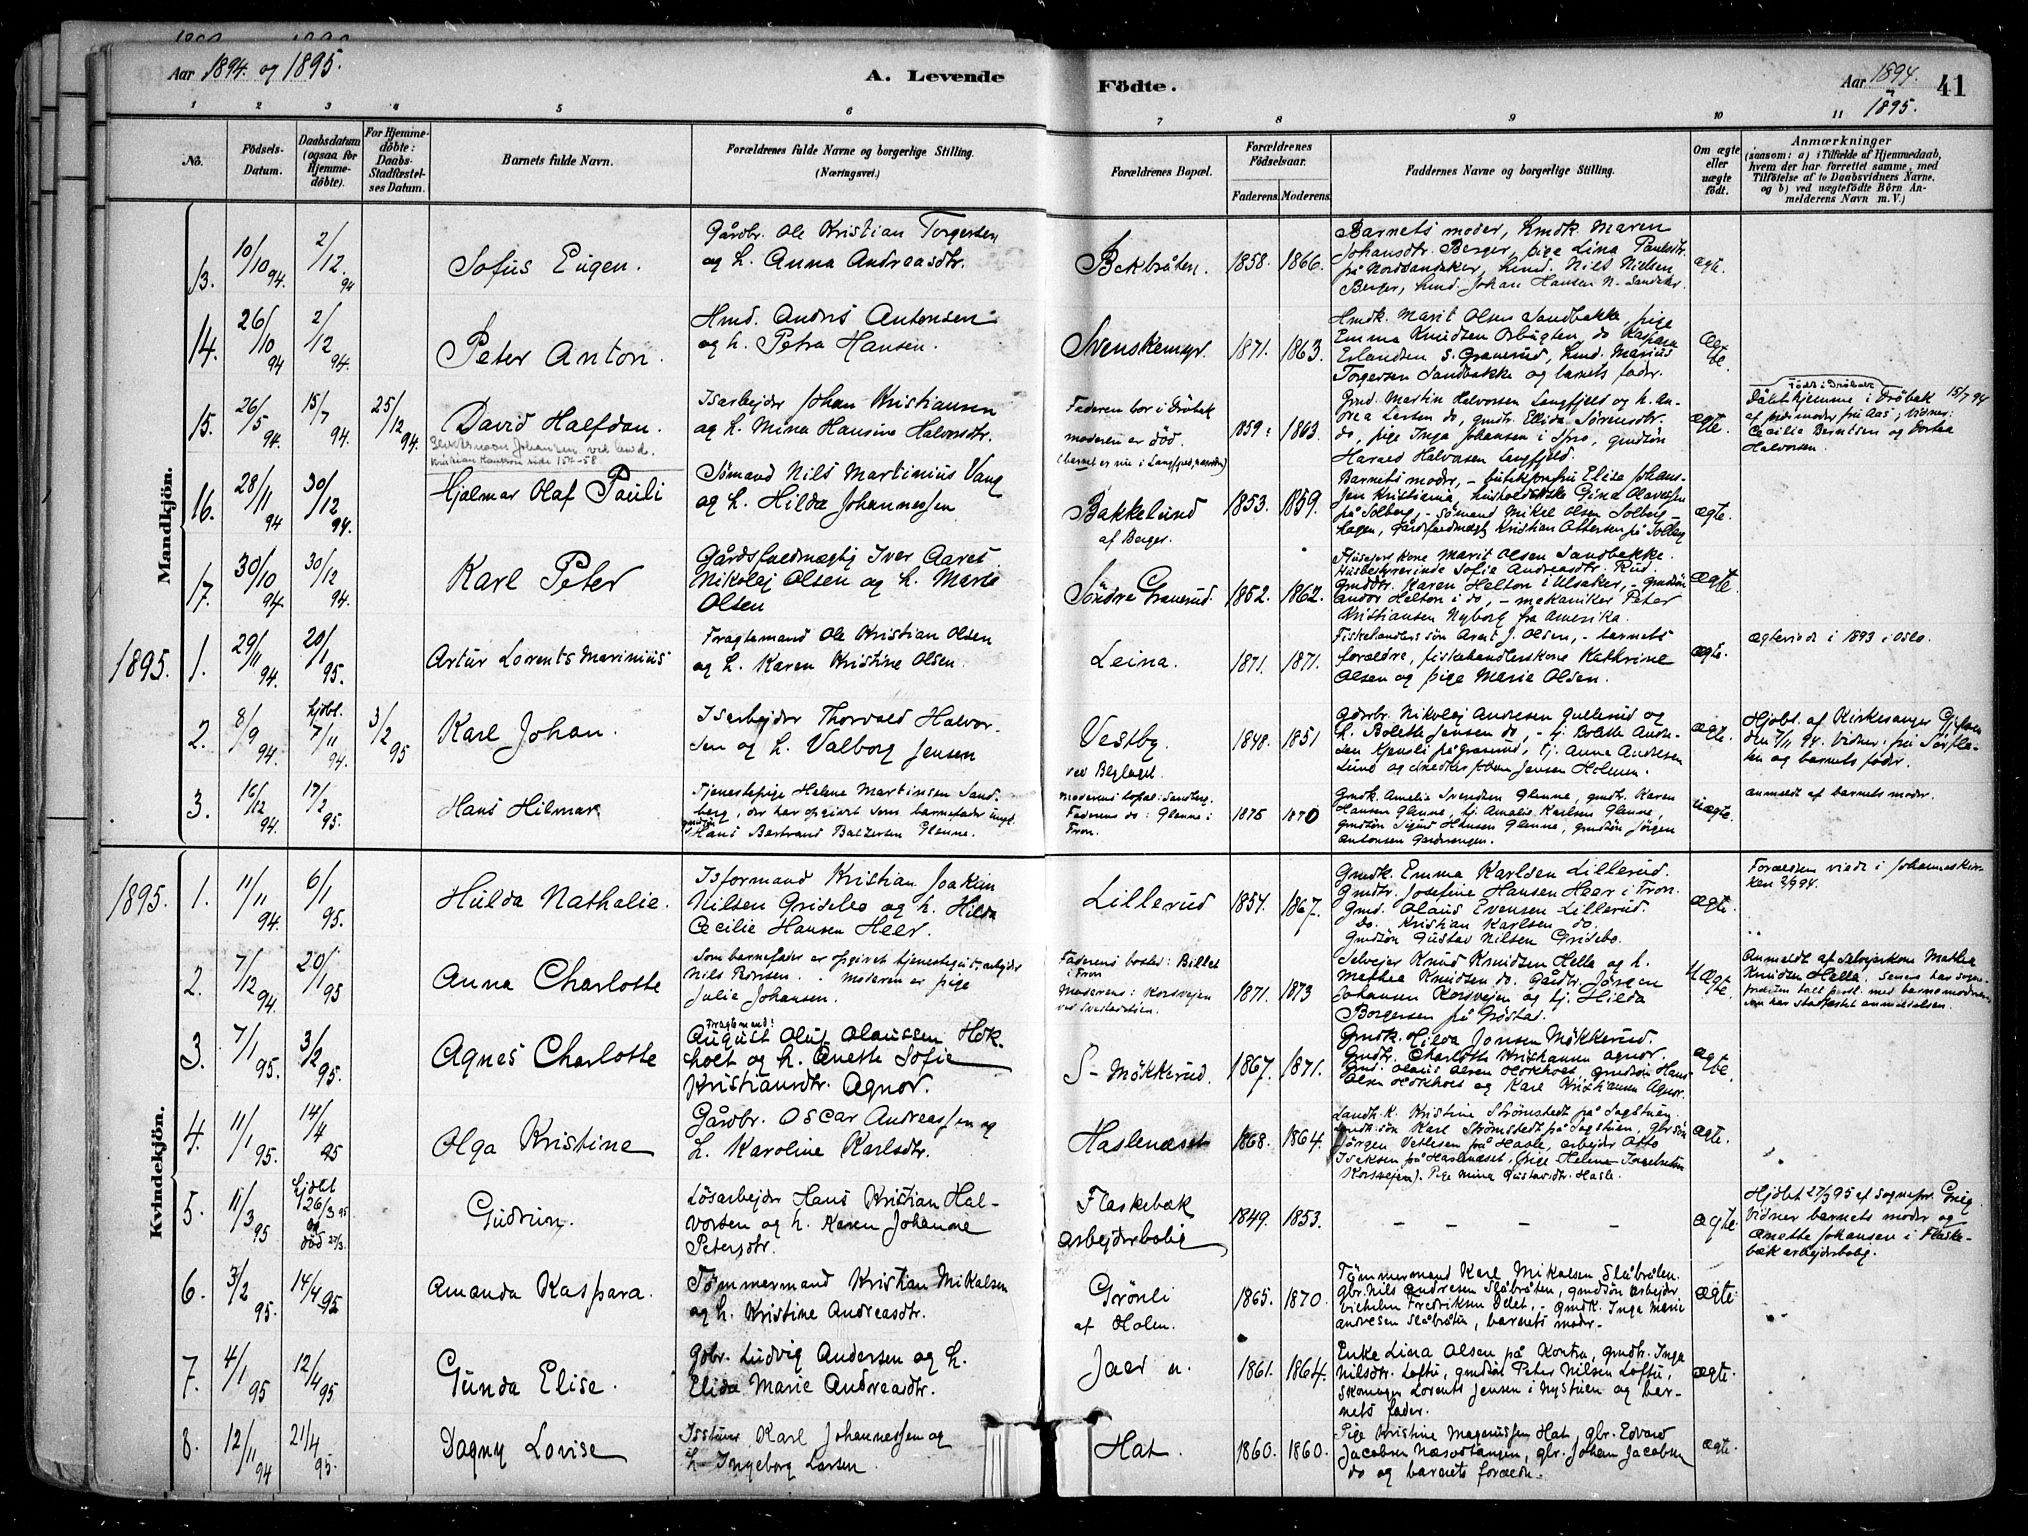 Aar 1894. og 1895.
A. Levende
Födte.
Aar 1894. 1895.
41
1 2 3 4 5 6 7 8 9 10 11
No.
Födsels-Datum.
Daabsdatum (ogsaa for Hjemmedöbte).
For Hjemmedöbte: Daabs-Stadfæstelses Datum.
Barnets fulde Navn.
Forældrenes fulde Navne og borgerlige Stilling. (Næringsvei.)
Forældrenes Bopæl.
Forældrenes Födselsaar.
Faderens. Moderens.
Faddernes Navne og borgerlige Stilling.
Om ægte eller uægte födt.
Anmærkninger
(saasom: a) i Tilfælde af Hjemmedaab, hvem der har forrettet samme, med Tilföielse af to Daabsvidners Navne, og b) ved uægtefödte Börn Anmelderens Navn m. V.)
Mandkjön.
13. 10/10 94. 2/12 94
Sofus Eugen.
Gårdbr. Ole Kristian Torgersen
og h. Anna Andreasdtr.
Bekbråten.
1858. 1866.
Barnets moder, hmdk. Maren
Johansdtr. Berger, pige Lina Paulsdtr.
på Nordsandaker, hmd. Nils Nielsen
Berger, hmd. Johan Hansen N. Sandaker.
ægte.
14. 26/10 94 2/12 94.
Peter Anton.
Hmd. Andris Antonsen
og h. Petra Hansen.
Svenskemyr.
1871. 1863.
Hmdk. Marit Olsen Sandbakke, pige
Emma Knudsen do Kaspara
Erlandsen S. Graverud, hmd. Marius
Torgersen Sandbakke og barnets fader.
Ægte.
15. 26/5 94. 15/7 94. 25/12 94.
David Halfdan.
Kristian Hansen side 157-58.
Isarbejder Johan Kristiansen
og h. Mina Hansine Halvorsdtr.
Faderen bor i Drøbak
moderen er död.
1859. 1863.
Gmd. Martin Halvorsen Langfjeld og h. An-
drea Larsen do, gmdtr. Elida Sörensdtr.
do, pige Inga Johansen i Spro, gmdsön
Harald Halvorsen Langfjeld.
ægte.
Født i Drøbak
Döbt hjemme i Dröbak 15/7 94
af jordemoder fra Aas; Vidner:
Cecilie Berntsen og Dortea
Halvorsen.
16. 28/11 94 30/12 94.
Hjalmar Olaf Pauli
Sömand Nils Martinius Vang
og h. Hilda Johannessen
Bakkelund
af Berger.
1853. 1859.
Barnets moder,
på Solberg, - sömand Mikal Olsen Solberg-
hagen, Gårdsfuldmægt. Kristian Ottersen på Solberg
ægte.
17. 30/10 94. 30/12 94.
Karl Peter
Gårdsfuldmægtig Iver Aares
Nikolaj Olsen og h. Marie
Olsen
Söndre Graverud.
1852. 1862.
kone Marit Olsen Sandbakke.
Husbestyrerinde Sofie Andreasdtr. Rud.
Gmddtr. Karen Helton i Ulsaker, - gmdsön
Andor Helton i do, - mekaniker Peter
Kristiansen Nyborg fra Amerika.
ægte.
1895.
1. 29/11 94. 20/1 95.
Artur Lorents Marinius
Fragtemand Ole Kristian Olsen
og h. Karen Kristine Olsen.
Leina.
1871. 1871.
Fiskehandlers sön Aret J. Olsen, - barnets
forældre, fiskehandlerskone Kathrine
Olsen og pige Marie Olsen.
ægte.
Ægteviede i 1893 i Oslo.
2. 8/9 94. hjdbt. 7/11 94. 3/2 95
Karl Johan.
Isarbejder Thorvald Halvor-
sen og h. Valborg Jensen
Vestby
1848. 1851
Gårdbr. Nikolaj Andresen Gullerud og
h. Bolette Jensen do, - tj. Bolette Andre-
sen tj. Anna Andresen
Lund og snedker Johan Jensen Holmen.
ægte.
Hjdbt. af Kirkesanger
den 7/11 94. Vidner:
og barnets fader.
3. 16/12 94. 17/2 95.
Hans Hilmar
Tjenestepige Helene Martinsen Sand-
berg, der har opgivet som barnefader ungk.
gmdsön Hans Bertrand Baltzersen Glenne.
Moderens bopæl: Sandberg.
Faderens do: Glenne i
Fron.
1875 1870
Gmdk. Amalie Svendsen Glenne, gmdtr. Karen
Hansen Glenne, tj. Amalie Karlsen Glenne,
gmdsön Sigurd Hansen Glenne, gmdsön Jörgen
Antonsen
uægte.
anmeldt af barnets moder.
Kvindekjön.
1895.
1. 11/11 94. 6/1 95.
Hulda Nathalie.
Isformand Kristian Joakim
Nilsen Gridsebo og h. Hilda
Cecilie Hansen Heer.
Lillerud
1854. 1867.
Gmdk. Emma Karlsen Lillerud.
Gmdtr. Josefine Hansen Heer i Fron.
Gmd. Olaus Evensen Lillerud.
Do. Kristian Karlsen do.
Gmdsön Gustav Nilsen Gridsebo.
ægte.
Forældren viede i Johanneskir-
ken 94.
2. 7/12 94. 20/1 95
Anna Charlotte
Som barnefader er opgivet tjenestegut-arbejder
Nils Moderen er pige
Julie Johansen.
Faderens bosted: Billet
i Fron
Moderens: Korsvejen
1871. 1873
Selvejer Knud Knudsen Hella og h.
Mathea Knudsen do. Gårdbr. Jörgen
Johansen Korsvejen og tj. Hilda
Borgersen på Gröstad.
Uægte.
Anmeldt af Selvejerkone Mathea
Knudsen Hella, senere har sogne-
præsten talt persl. med barnemoderen,
som har stadfæstet anmeldelsen.
3. 7/1 95. 3/2 95.
Agnes Charlotte
Fragtemand:
August Oluf Olaussen Hok-
holt og h. Anette Sofie
Kristiansdtr. Agnor.
S-Mökkerud.
1867. 1871.
Gmdk. Hilda Jonsen Mökkerud.
Gmdtr. Charlotte Kristiansen Agnor.
Gmd. Olaus Olsen Hokholt, gmdsön Hans
Olsen Hokholt og Karl Kristiansen Agnor.
ægte.
4. 11/1 95. 14/4 95
Olga Kristine
Gårdbr. Oscar Andreassen og
h. Karoline Karlsdtr.
Haslenæset
1868. 1864.
Landh.k. Kristine Strömstedt på Sagstuen,
sön Karl Strömstedt på Sagstuen, gbr.sön
Jörgen Vetlesen på Hasle, arbejder Otto
Isaksen på Haslenæset, (pige Helene
Korsvejen). Pige Mina Gustavsdtr. Hasle.
ægte.
5. 11/3 95 hjdbt 26/3 95 død 27/3.
Gudrun.
Lösarbejder Hans Kristian Hal-
vorsen og h. Karen Johanne
Petersdtr.
Flaskebæk
arbejderbolig
1849. 1853.
- - - -
ægte.
Hjdbt 27/3 95 af sognepr. Greig
Vidner barnets moder og
Anette Johansen i Flaske-
bæk arbejderbolig.
6. 3/2 95. 14/4 95
Amanda Kaspara.
Tömmermand Kristian Mikalsen
og h. Kristine Andreasdtr.
Grönli
af Holen.
1865. 1870.
Tömmermand Karl Mikalsen Slåbråten.
gbr. Nils Andresen Slåbråten, gmdsön arbejder
Vilhelm Fredriksen Delet, - gmdk. Inga Marie
Andresen Slåbråten, barnets moder.
ægte.
7. 4/1 95 12/4 95
Gunda Elise.
Gbr. Ludvig Andersen og h.
Elida Marie Andreasdtr.
Jaer n.
1861. 1864.
Enke Lina Olsen på Kortra, gmdtr. Inga
Nilsdtr. Loftu, gmdsön Peter Nilsen Loftu,
Skomager Lorents Jensen i Nystuen og bar-
nets fader.
ægte.
8. 12/11 94 21/4 95.
Dagny Lovise
Karl Johannessen og
h. Ingeborg Larsen.
Hat.
1860. 1860.
Pige Kristine Magnussen Hat, gbr. Edvard
Jacobsen Næsoddtangen, gbr. Johan Jacobsen
do og barnets forældre.
ægte.